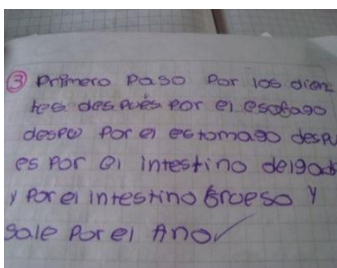 ③ Primero Paso Por los dien
tes después Por el esofago
despu Por el estomago despu
es Por el intestino delgado
y Por el intestino Grueso y
sale Por el Ano